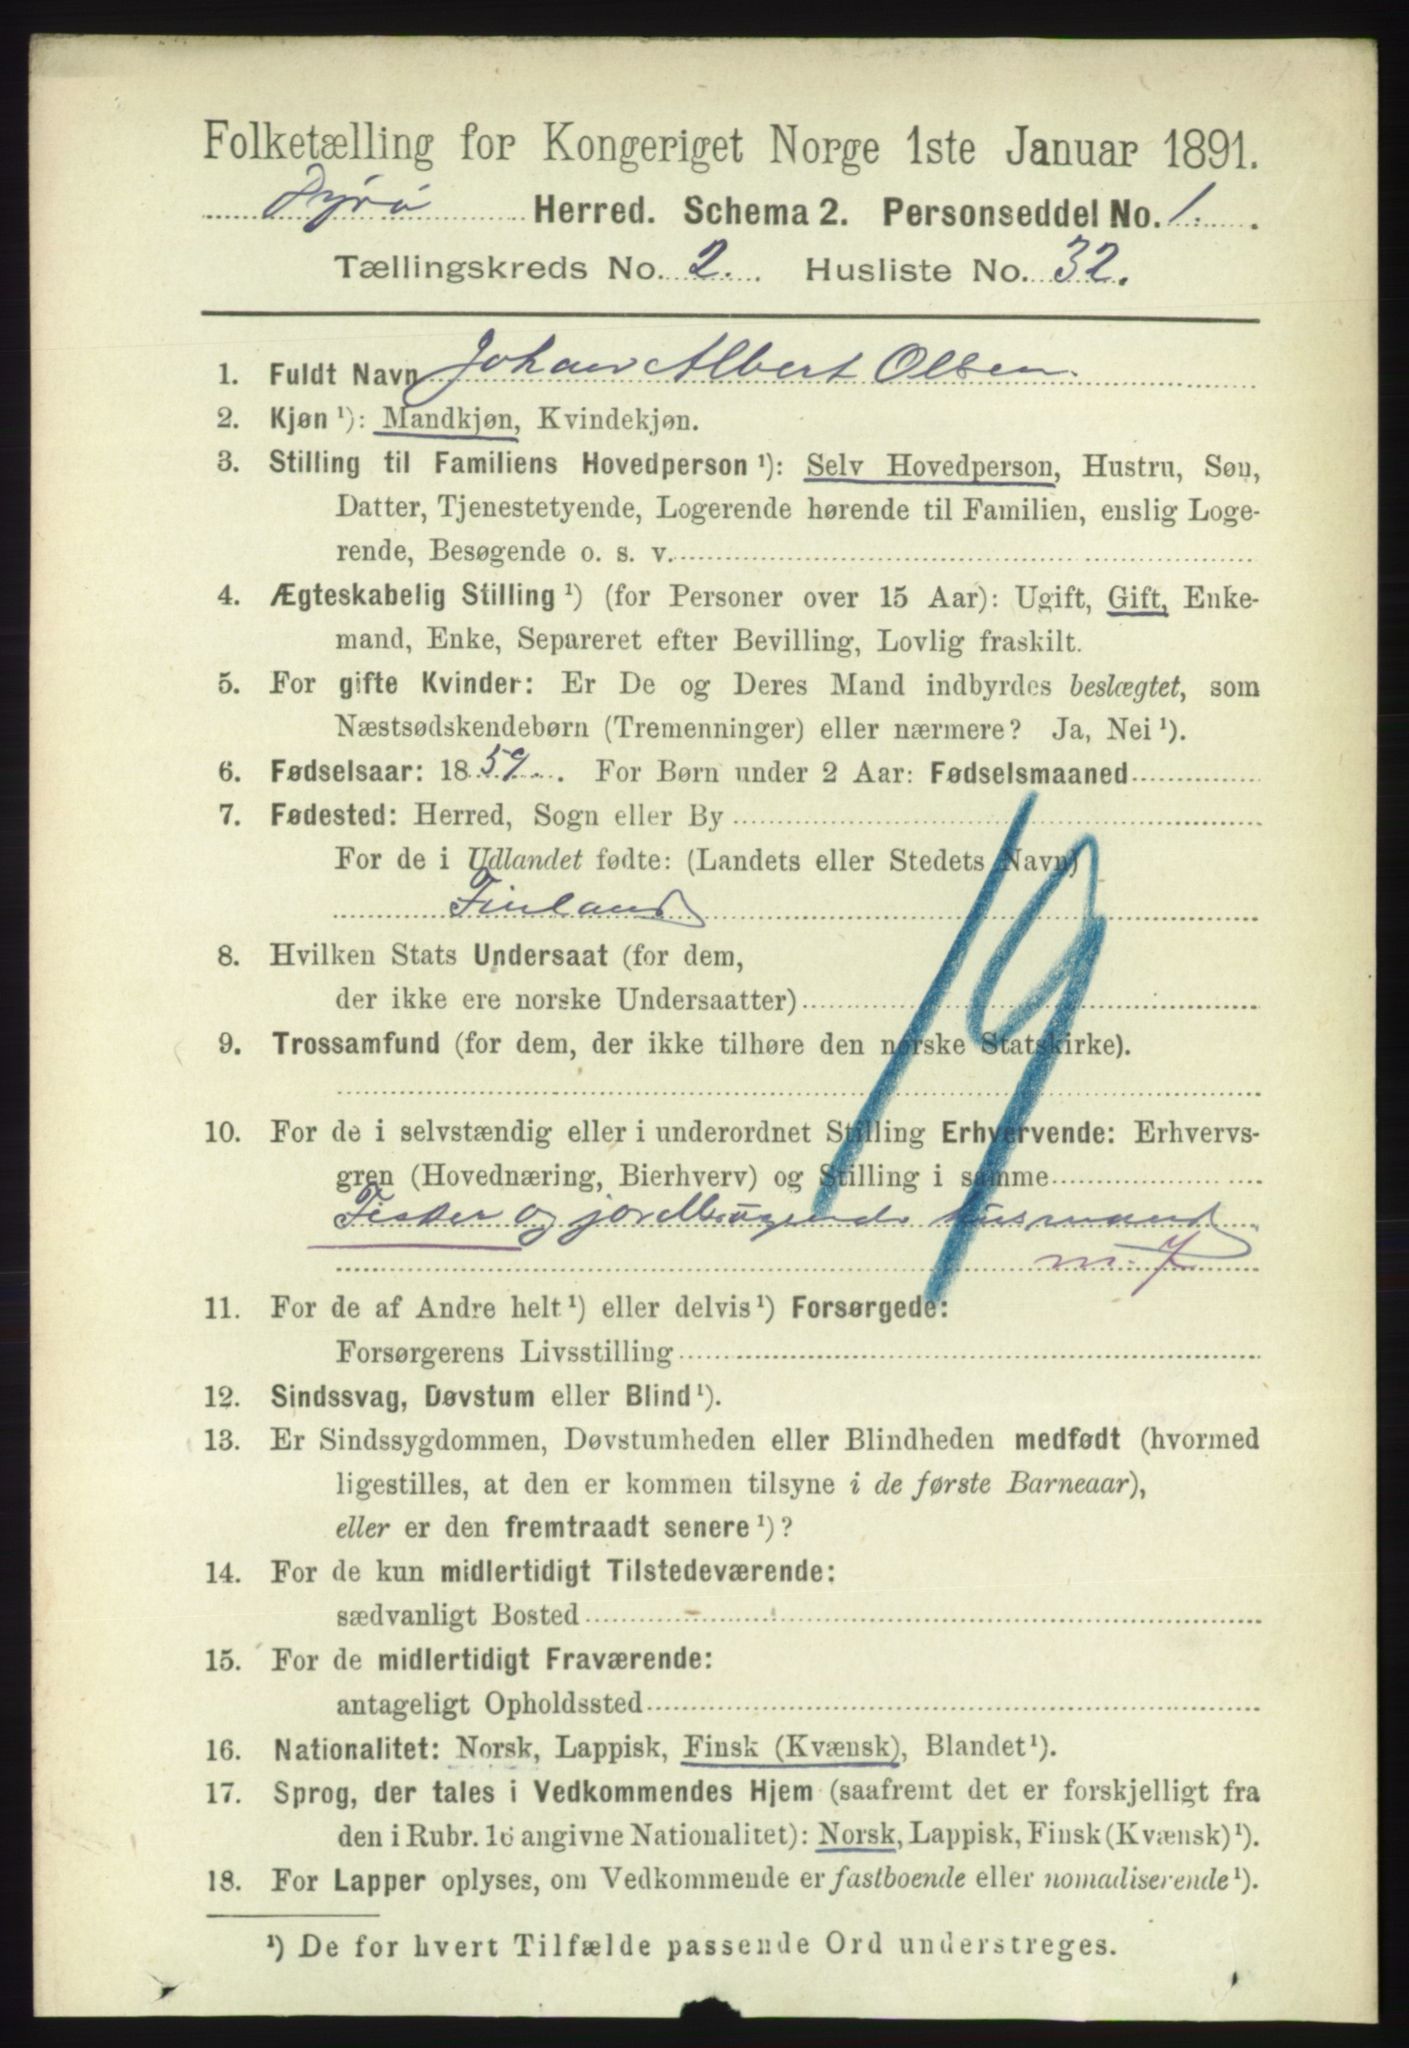 Folketælling for Kongeriget Norge 1ste Januar 1891.
Dyrø Herred. Schema 2. Personseddel No. 1.
Tællingskreds No. 2. Husliste No. 32.
1. Fuldt Navn Johan Albert Olsen.
2. Kjøn ¹): Mandkjøn, Kvindekjøn.
3. Stilling til Familiens Hovedperson ¹): Selv Hovedperson, Hustru, Søn,
Datter, Tjenestetyende, Logerende hørende til Familien, enslig Loge-
rende, Besøgende o. s. v.
4. Ægteskabelig Stilling ¹) (for Personer over 15 Aar): Ugift, Gift, Enke-
mand, Enke, Separeret efter Bevilling, Lovlig fraskilt.
5. For gifte Kvinder: Er De og Deres Mand indbyrdes beslægtet, som
Næstsødskendebørn (Tremenninger) eller nærmere? Ja, Nei ¹).
6. Fødselsaar: 1859. For Børn under 2 Aar: Fødselsmaaned
7. Fødested: Herred, Sogn eller By
For de i Udlandet fødte: (Landets eller Stedets Navn)
Finland
8. Hvilken Stats Undersaat (for dem,
der ikke ere norske Undersaatter)
9. Trossamfund (for dem, der ikke tilhøre den norske Statskirke).
19
10. For de i selvstændig eller i underordnet Stilling Erhvervende: Erhvervs-
gren (Hovednæring, Bierhverv) og Stilling i samme
Fisker og jordbrugende husmand
m. j
11. For de af Andre helt ¹) eller delvis ¹) Forsørgede:
Forsørgerens Livsstilling
12. Sindssvag, Døvstum eller Blind ¹).
13. Er Sindssygdommen, Døvstumheden eller Blindheden medfødt (hvormed
ligestilles, at den er kommen tilsyne i de første Barneaar),
eller er den fremtraadt senere ¹)?
14. For de kun midlertidigt Tilstedeværende:
sædvanligt Bosted
15. For de midlertidigt Fraværende:
antageligt Opholdssted
16. Nationalitet: Norsk, Lappisk, Finsk (Kvænsk), Blandet ¹).
17. Sprog, der tales i Vedkommendes Hjem (saafremt det er forskjelligt fra
den i Rubr. 16 angivne Nationalitet): Norsk, Lappisk, Finsk (Kvænsk) ¹).
18. For Lapper oplyses, om Vedkommende er fastboende eller nomadiserende ¹).
¹) De for hvert Tilfælde passende Ord understreges.